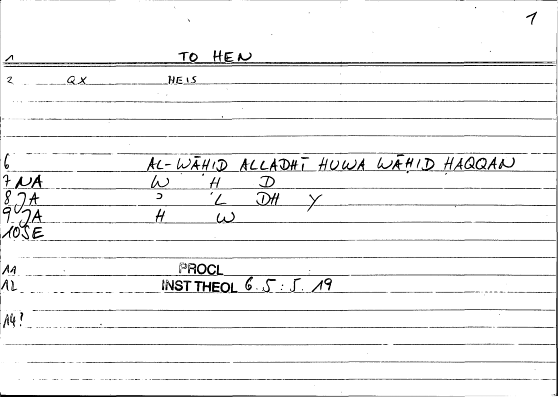 1
1 TO HEN
2 QX HEIS
6 AL-WĀḤID ALLADHĪ HUWA WĀḤID ḤAQQAN
7 NA W Ḥ D
8 JA ʾ 'L DH Y
9 JA H W
10 SE
11 PROCL
12 INST THEOL 6.5:5.19
14?